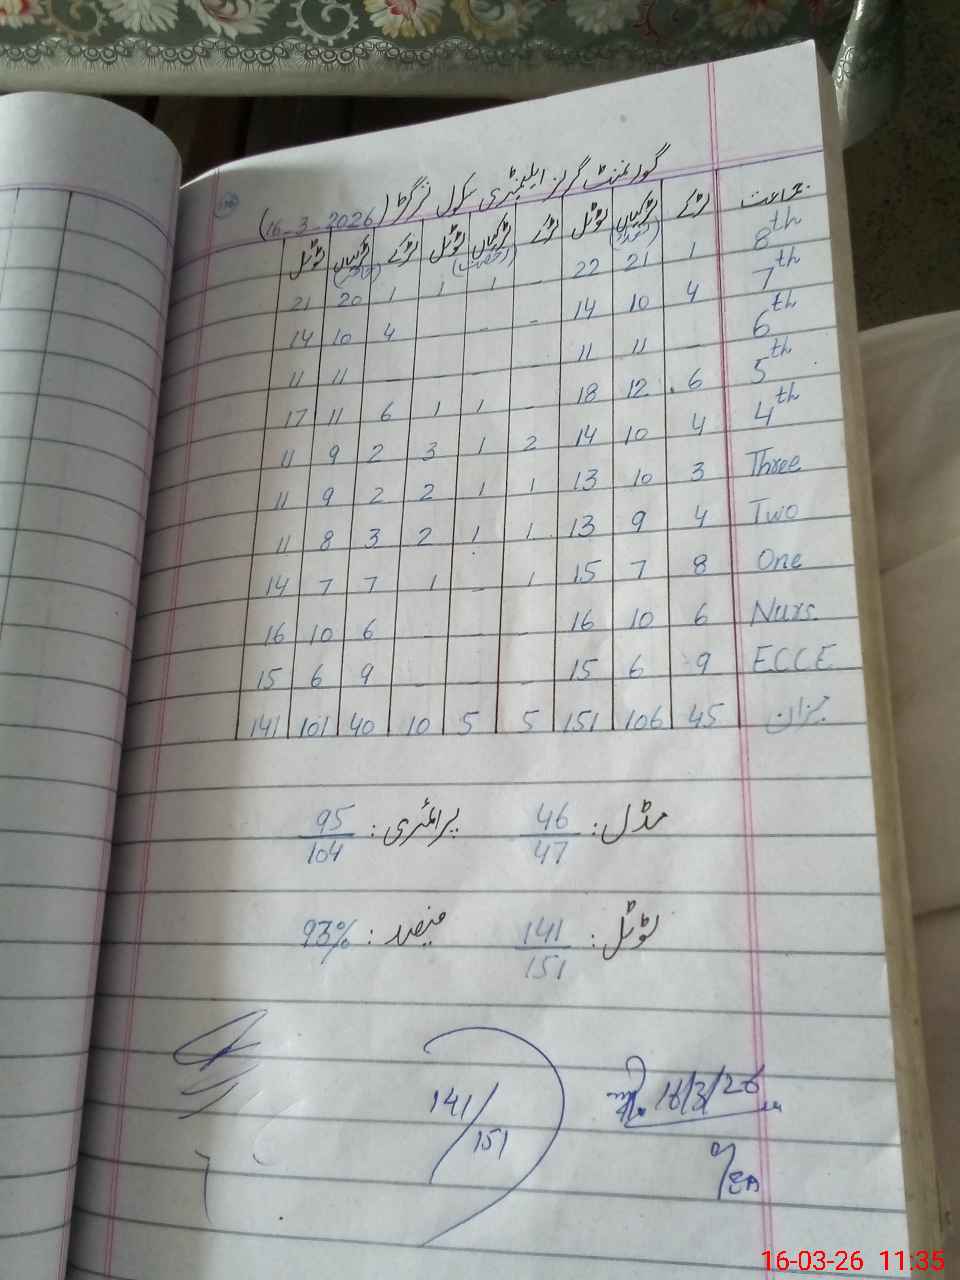 گورنمنٹ گرلز ایلیمنٹری سکول (16-3-2026)
جماعت لڑکے لڑکیاں (تعداد) ٹوٹل لڑکے لڑکیاں ٹوٹل لڑکے لڑکیاں (حاضر) ٹوٹل
8th 1 21 22 - 1 1 1 20 21
7th 4 10 14 - - - 4 10 14
6th - 11 11 - - - - 11 11
5th 6 12 18 - 1 1 6 11 17
4th 4 10 14 2 1 3 2 9 11
Three 3 10 13 1 1 2 2 9 11
Two 4 9 13 1 1 2 3 8 11
One 8 7 15 1 - 1 7 7 14
Nurs. 6 10 16 - - - 6 10 16
ECCE 9 6 15 - - - 9 6 15
میزان 45 106 151 5 5 10 40 101 141
مڈل: 46/47 پرائمری: 95/104
ٹوٹل: 141/151 فیصد: 93%
141/151
16/3/26
16-03-26 11:35